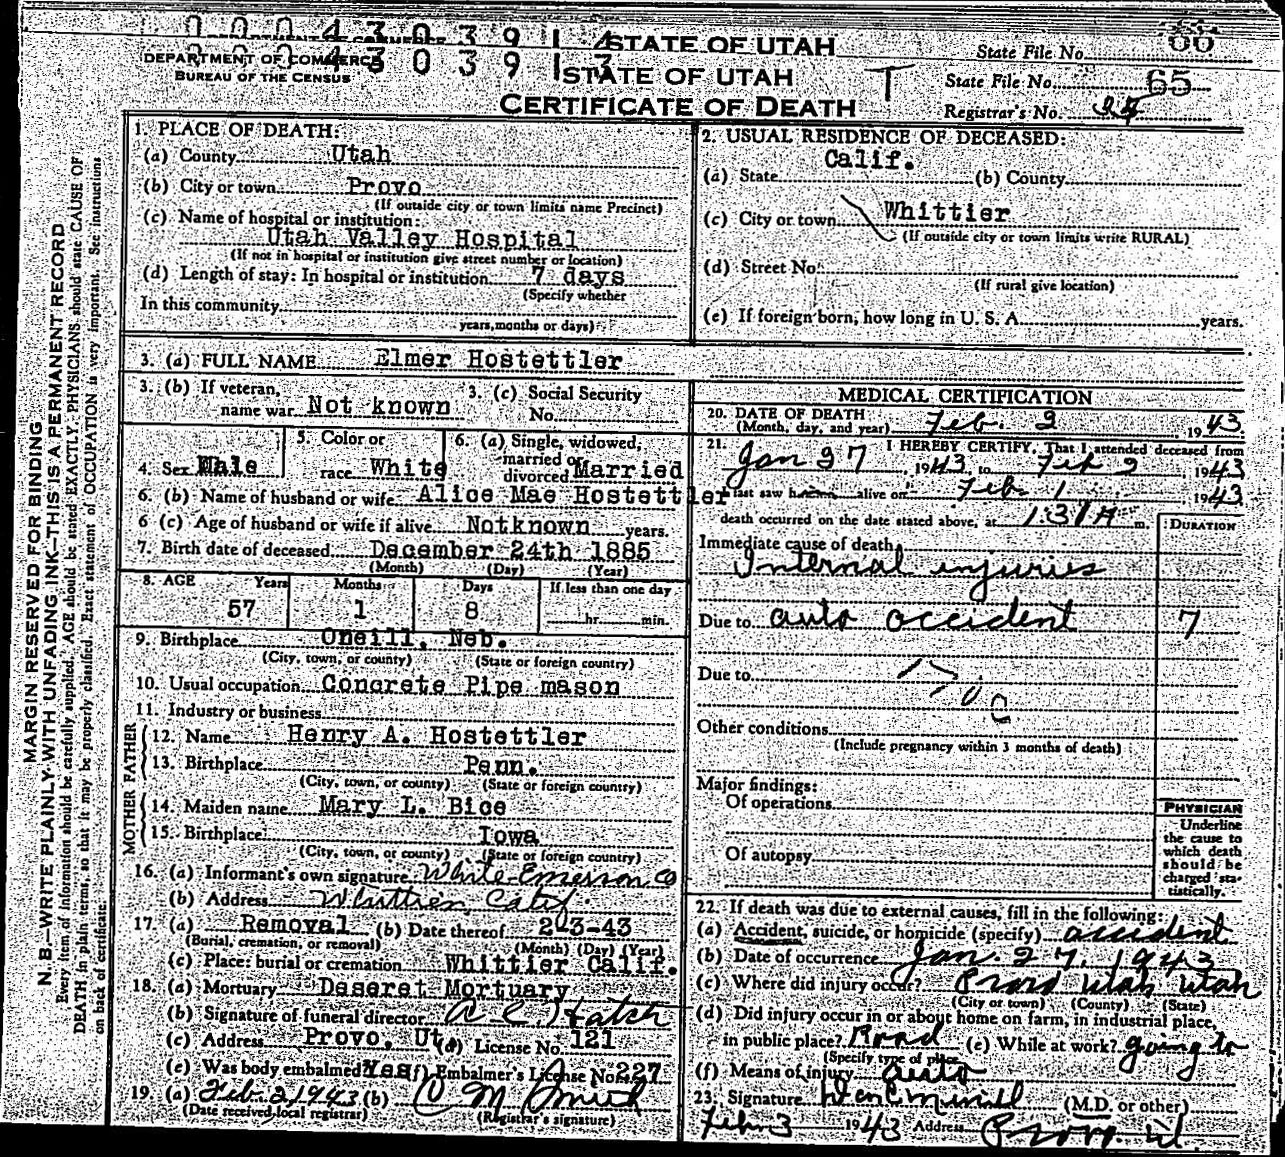 0 0 0 4 3 0 3 9 1 4 STATE OF UTAH
State File No. 66
DEPARTMENT OF COMMERCE 0 0 0 4 3 0 3 9 1 3 STATE OF UTAH T
BUREAU OF THE CENSUS
State File No. 65
CERTIFICATE OF DEATH
Registrar's No.
MARGIN RESERVED FOR BINDING
N. B.—WRITE PLAINLY WITH UNFADING INK—THIS IS A PERMANENT RECORD
Every item of information should be carefully supplied. AGE should be stated EXACTLY. PHYSICIANS should state CAUSE OF
DEATH in plain terms, so that it may be properly classified. Exact statement of OCCUPATION is very important. See instructions
on back of certificate.
1. PLACE OF DEATH:
(a) County Utah
(b) City or town Provo
(If outside city or town limits name Precinct)
(c) Name of hospital or institution:
Utah Valley Hospital
(If not in hospital or institution give street number or location)
(d) Length of stay: In hospital or institution 7 days
(Specify whether
In this community
years, months or days)
2. USUAL RESIDENCE OF DECEASED:
(a) State Calif. (b) County
(c) City or town Whittier
(If outside city or town limits write RURAL)
(d) Street No.
(If rural give location)
(e) If foreign born, how long in U. S. A. years.
3. (a) FULL NAME Elmer Hostettler
3. (b) If veteran, name war Not known 3. (c) Social Security No.
4. Sex Male 5. Color or race White 6. (a) Single, widowed, married or divorced Married
6. (b) Name of husband or wife Alice Mae Hostettler
6 (c) Age of husband or wife if alive Notknown years.
7. Birth date of deceased December 24th 1885
(Month) (Day) (Year)
8. AGE Years Months Days If less than one day
57 1 8 hr. min.
9. Birthplace Oneill, Neb.
(City, town, or county) (State or foreign country)
10. Usual occupation Concrete Pipe mason
11. Industry or business
FATHER
12. Name Henry A. Hostettler
13. Birthplace Penn.
(City, town, or county) (State or foreign country)
MOTHER
14. Maiden name Mary L. Bice
15. Birthplace Iowa
(City, town, or county) (State or foreign country)
16. (a) Informant's own signature White-Emerson Co
(b) Address Whittier, Calif.
17. (a) Removal (b) Date thereof 2-3-43
(Burial, cremation, or removal) (Month) (Day) (Year)
(c) Place: burial or cremation Whittier Calif.
18. (a) Mortuary Deseret Mortuary
(b) Signature of funeral director A C Hatch
(c) Address Provo, Ut. (d) License No. 121
(e) Was body embalmed Yes (f) Embalmer's License No. 227
19. (a) Feb. 2, 1943 (b)
(Date received local registrar) (Registrar's signature)
MEDICAL CERTIFICATION
20. DATE OF DEATH
(Month, day, and year) Feb. 2 1943
21. I HEREBY CERTIFY, That I attended deceased from
Jan 27, 1943, to Feb 2 1943
last saw h alive on Feb. 1, 1943
death occurred on the date stated above, at 1:31 A m.
DURATION
Immediate cause of death
Internal injuries
Due to auto accident 7
Due to
Other conditions
(Include pregnancy within 3 months of death)
Major findings:
Of operations
Of autopsy
PHYSICIAN
Underline
the cause to
which death
should be
charged sta-
tistically.
22. If death was due to external causes, fill in the following:
(a) Accident, suicide, or homicide (specify) accident
(b) Date of occurrence Jan. 27, 1943
(c) Where did injury occur? Provo Utah Utah
(City or town) (County) (State)
(d) Did injury occur in or about home on farm, in industrial place,
in public place? Road (e) While at work? going to
(Specify type of place)
(f) Means of injury auto
23. Signature (M.D. or other)
Feb 3 1943 Address Provo, Ut.